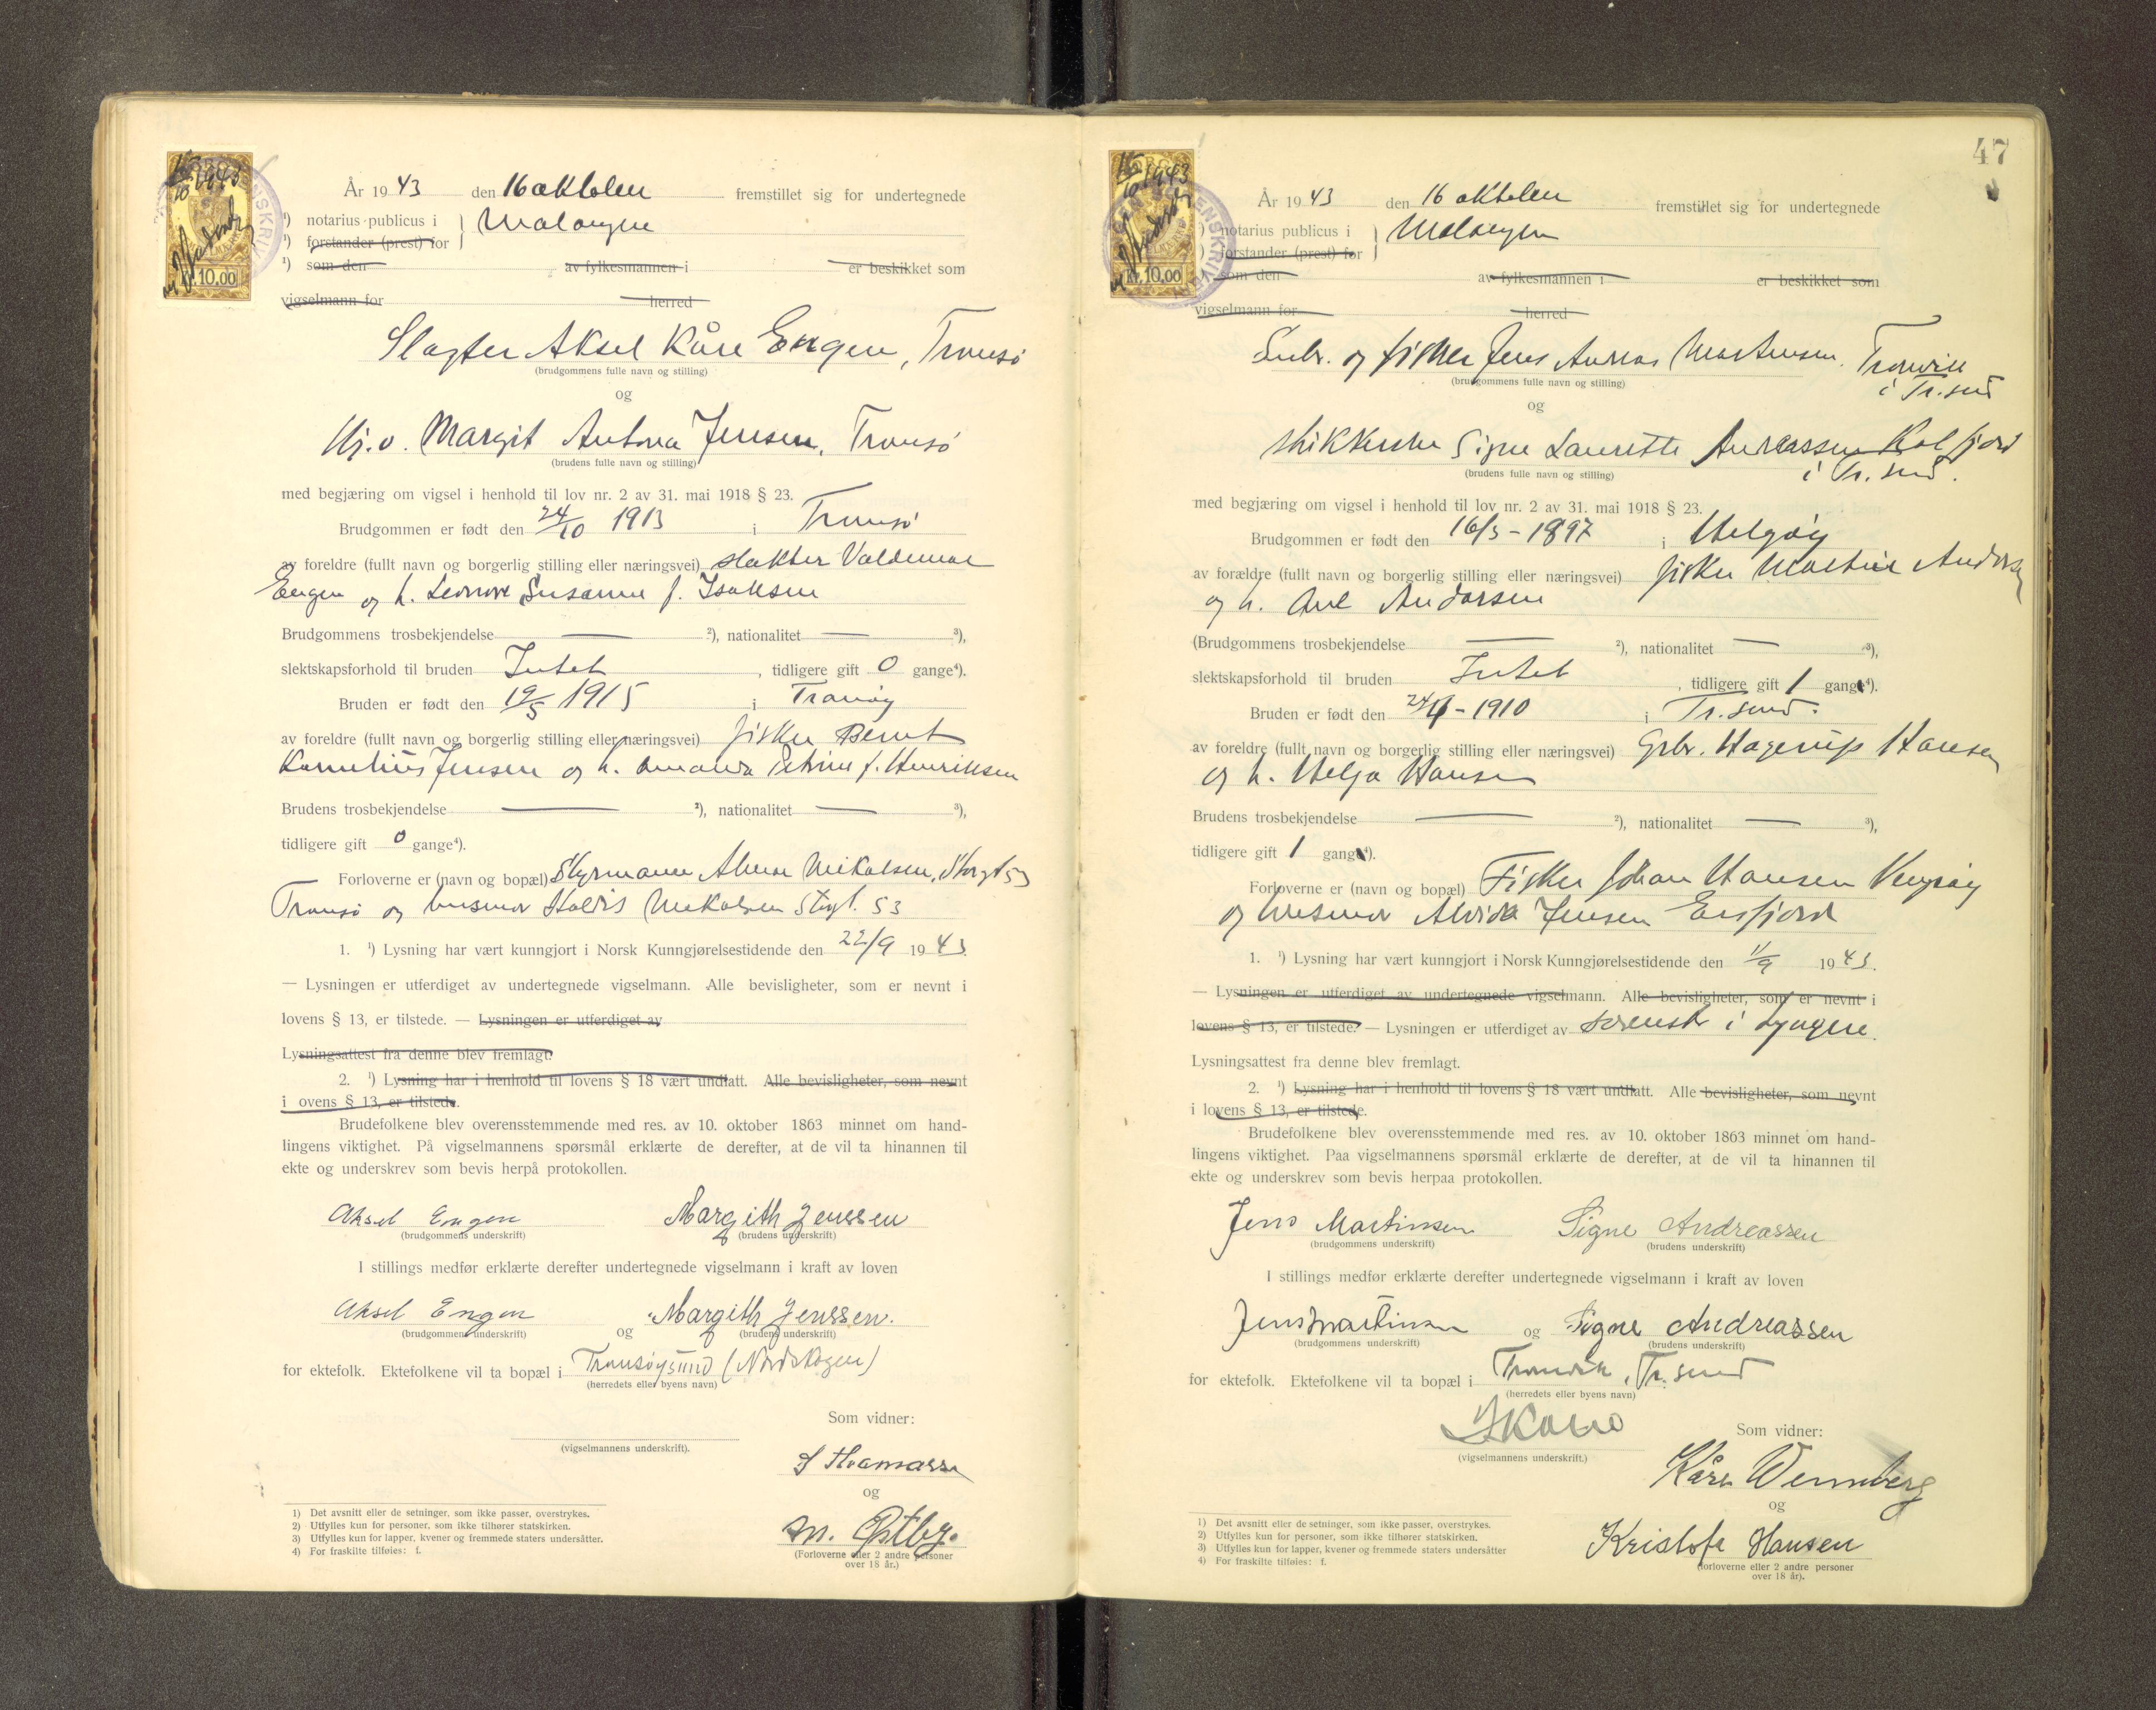 År 1943 den 16 oktober fremstillet sig for undertegnede
¹) notarius publicus i Malangen
¹) forstander (prest) for
¹) som den av fylkesmannen i er beskikket som
vigselmann for herred
Slagter Aksel Kåre Engen, Tromsø
(brudgommens fulle navn og stilling)
og
Hj.v. Margit Antona Jensen, Tromsø
(brudens fulle navn og stilling)
med begjæring om vigsel i henhold til lov nr. 2 av 31. mai 1918 § 23.
Brudgommen er født den 24/10 1913 i Tromsø
av foreldre (fullt navn og borgerlig stilling eller næringsvei) slakter Valdemar
Engen og h. Leonore Susanne f. Isaksen
Brudgommens trosbekjendelse — ²), nationalitet — ³),
slektskapsforhold til bruden Intet, tidligere gift 0 gange⁴).
Bruden er født den 19/5 1915 i Tranøy
av foreldre (fullt navn og borgerlig stilling eller næringsvei) fisker Bernt
Kornelius Jensen og h. Amanda Petrine f. Henriksen
Brudens trosbekjendelse — ²), nationalitet — ³),
tidligere gift 0 gange⁴).
Forloverne er (navn og bopæl) Styrmann Nikolsen, Storgt 53
Tromsø og husmor Haldis Nikolsen Stogt. 53
1. ¹) Lysning har vært kunngjort i Norsk Kunngjørelsestidende den 22/9 1943.
— Lysningen er utferdiget av undertegnede vigselmann. Alle bevisligheter, som er nevnt i
lovens § 13, er tilstede. — Lysningen er utferdiget av
Lysningsattest fra denne blev fremlagt.
2. ¹) Lysning har i henhold til lovens § 18 vært undlatt. Alle bevisligheter, som nevnt
i ovens § 13, er tilstede.
Brudefolkene blev overensstemmende med res. av 10. oktober 1863 minnet om hand-
lingens viktighet. På vigselmannens spørsmål erklærte de derefter, at de vil ta hinannen til
ekte og underskrev som bevis herpå protokollen.
Aksel Engen Margith Jenssen
(brudgommens underskrift) (brudens underskrift)
I stillings medfør erklærte derefter undertegnede vigselmann i kraft av loven
Aksel Engen og Margith Jenssen.
(brudgommens underskrift) (brudens underskrift)
for ektefolk. Ektefolkene vil ta bopæl i Tromsøysund (Nordskogen)
(herredets eller byens navn)
Som vidner:
(vigselmannens underskrift).
og
M. Østby.
(Forloverne eller 2 andre personer
over 18 år.)
1) Det avsnitt eller de setninger, som ikke passer, overstrykes.
2) Utfylles kun for personer, som ikke tilhører statskirken.
3) Utfylles kun for lapper, kvener og fremmede staters undersåtter.
4) For fraskilte tilføies: f.
Kr. 10.00
47
År 1943 den 16 oktober fremstillet sig for undertegnede
¹) notarius publicus i Malangen
¹) forstander (prest) for
som den av fylkesmannen i er beskikket som
vigselmann for herred
Snbr. og fisker Jens Andreas Martinsen. Tromvik
i Tr.sund
(brudgommens fulle navn og stilling)
og
Signe Laurette Andreassen Kalfjord
i Tr. sund.
(brudens fulle navn og stilling)
med begjæring om vigsel i henhold til lov nr. 2 av 31. mai 1918 § 23.
Brudgommen er født den 16/3 - 1897 i Helgøy
av forældre (fullt navn og borgerlig stilling eller næringsvei) fisker Andersen
og h. Andersen
(Brudgommens trosbekjendelse — ²), nationalitet — ³),
slektskapsforhold til bruden Intet, tidligere gift 1 gange⁴).
Bruden er født den - 1910 i Tr.sund.
av foreldre (fullt navn og borgerlig stilling eller næringsvei) Grbr. Hagerup Hansen
og h. Helga Hansen
Brudens trosbekjendelse — ²), nationalitet — ³),
tidligere gift 1 gang⁴).
Forloverne er (navn og bopæl) Fisker Johan Hansen Vengsøy
og husmor Alvida Jensen Ersfjord
1. ¹) Lysning har vært kunngjort i Norsk Kunngjørelsestidende den 11/9 1943.
— Lysningen er utferdiget av undertegnede vigselmann. Alle bevisligheter, som er nevnt i
lovens § 13, er tilstede. — Lysningen er utferdiget av sorenskr i Lyngen.
Lysningsattest fra denne blev fremlagt.
2. ¹) Lysning har i henhold til lovens § 18 vært undlatt. Alle bevisligheter, som nevnt
i lovens § 13, er tilstede.
Brudefolkene blev overensstemmende med res. av 10. oktober 1863 minnet om hand-
lingens viktighet. Paa vigselmannens spørsmål erklærte de derefter, at de vil ta hinannen til
ekte og underskrev som bevis herpaa protokollen.
Jens Martinsen Signe Andreassen
(brudgommens underskrift) (brudens underskrift)
I stillings medfør erklærte derefter undertegnede vigselmann i kraft av loven
Jens Martinsen og Signe Andreassen
(brudgommens underskrift) (brudens underskrift)
for ektefolk. Ektefolkene vil ta bopæl i Tromvik, Tr.sund
(herredets eller byens navn)
Som vidner:
(vigselmannens underskrift.)
Kåre Wennberg
og
Kristofa Hansen
(forloverne eller 2 andre personer
over 18 år).
1) Det avsnitt eller de setninger, som ikke passer, overstrykes.
2) Utfylles kun for personer, som ikke tilhører statskirken.
3) Utfylles kun for lapper, kvener og fremmede staters undersåtter
4) For fraskilte tilføies: f.
Kr. 10.00